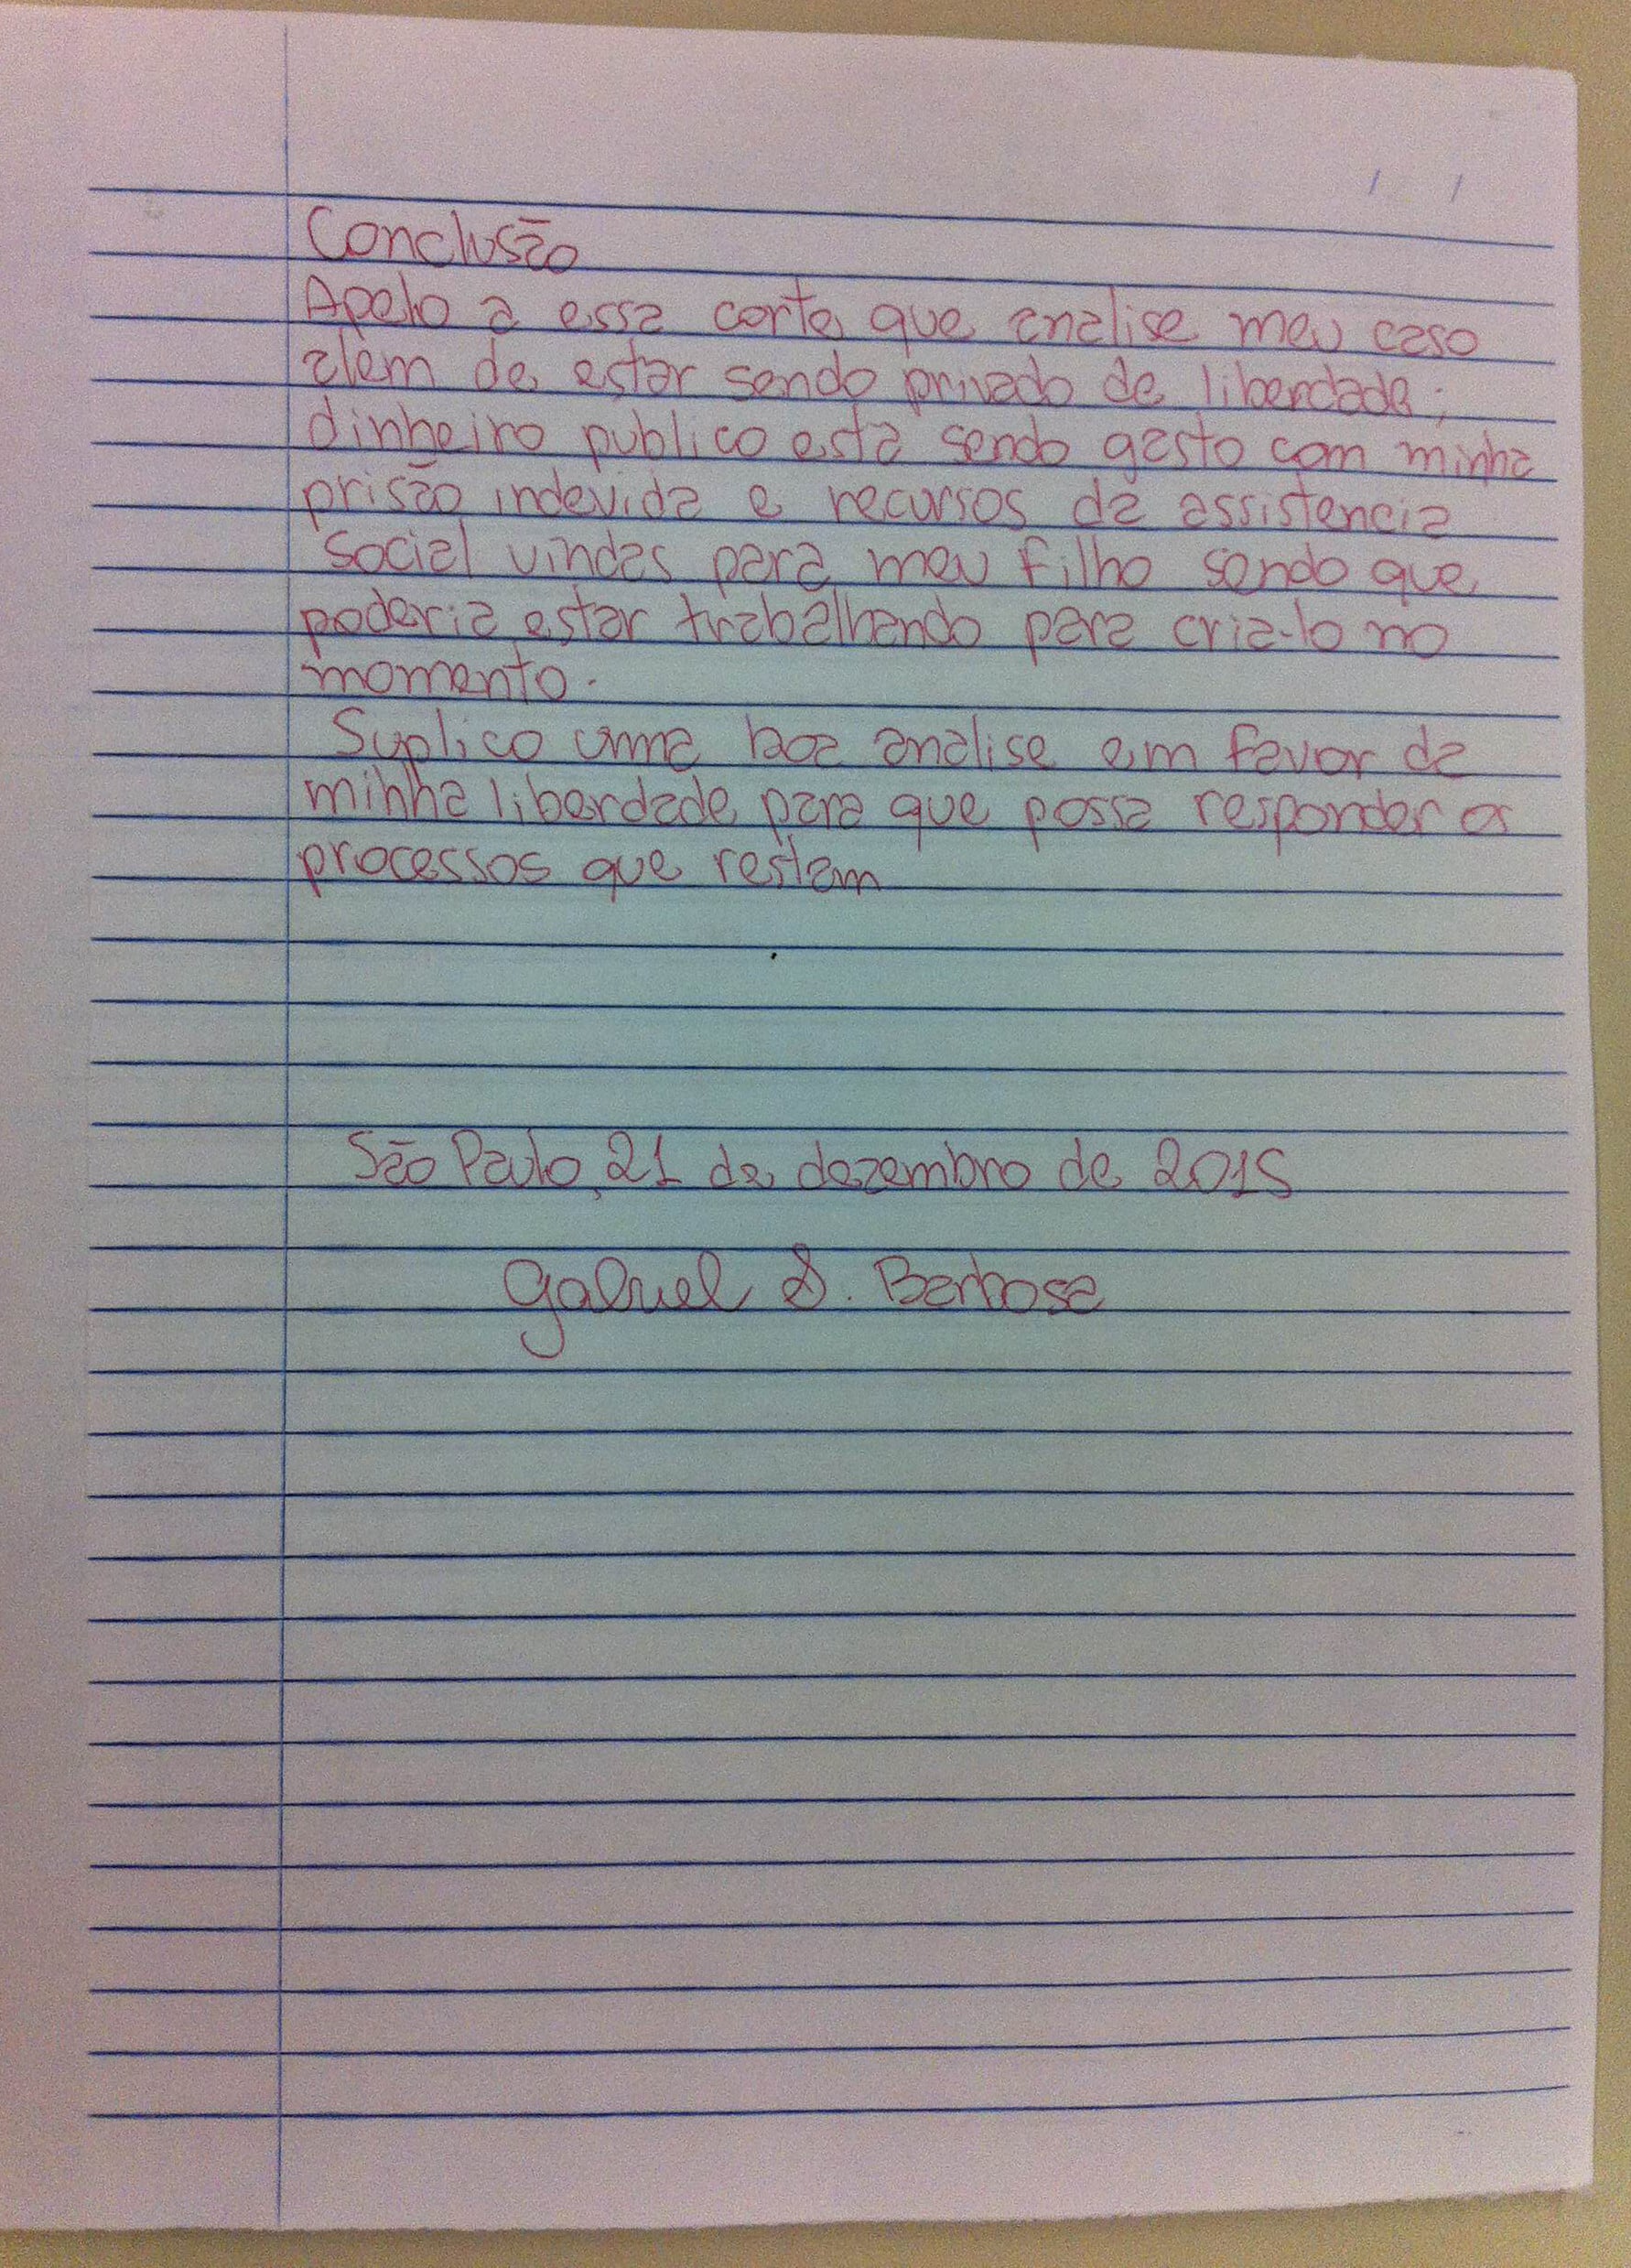 Conclusão
Apelo a essa corte que analise meu caso
alem de estar sendo privado de liberdade;
dinheiro publico está sendo gasto com minha
prisão indevida e recursos da assistencia
social vindas para meu filho sendo que
poderia estar trabalhando para cria-lo no
momento.
Suplico uma boa analise em favor da
minha liberdade para que possa responder os
processos que restam
São Paulo, 21 de dezembro de 2015
Gabriel S. Barbosa